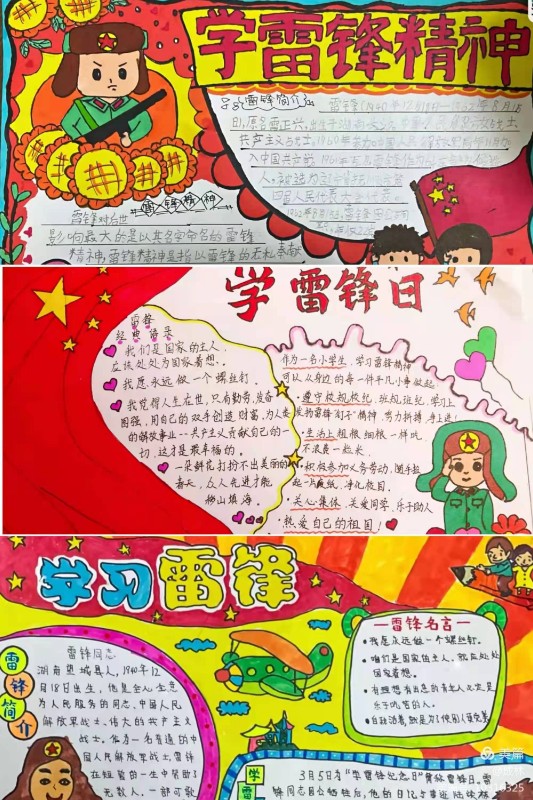 学雷锋精神
雷锋简介
雷锋(1940年12月18日—1962年8月15
日),原名雷正兴,出生于湖南长沙,
共产主义战士,1960年
入中国共产党,
雷锋精神
雷锋对后世
影响最大的是以其名字命名的雷锋
精神,雷锋精神是指以雷锋的无私奉献
学雷锋日
雷锋
经典语录
我们是国家的主人,
应该处处为国家着想。
我愿永远做一个螺丝钉。
我觉得人生在世,只有勤劳,发奋
图强,用自己的双手创造财富,为人类
的解放事业——共产主义贡献自己的一
切,这才是最幸福的。
一朵鲜花打扮不出美丽的
春天,众人先进才能
移山填海。
作为一名小学生,学习雷锋精神
可以从身边的每一件平凡小事做起:
遵守校规校纪,班规班纪,学习上
发扬雷锋“钉子”精神,努力拼搏,争上进!
生活上粗粮细粮一样吃,
不浪费一粒米。
积极参加义务劳动,随手捡
起一片废纸,净化校园。
关心集体,关爱同学,乐于助人
热爱自己的祖国!
学习雷锋
雷锋简介
雷锋同志
湖南望城县人,1940年12
月18日出生,他是全心全意
为人民服务的同志,中国人民
解放军战士,伟大的共产主义
战士。作为一名普通的中
国人民解放军战士,雷锋
在短暂的一生中帮助了
无数人,一部可歌
雷锋名言
我愿永远做一个螺丝钉。
咱们是国家的主人,就应处处
国家着想。
有理想有出息的青年人必定是
乐于吃苦的人。
自己活着,就是为了使别人过得更美
学雷
3月5日为“学雷锋纪念日”黄称雷锋日。雷
锋同志因公牺牲后,他的日记与事迹陆续被
美篇